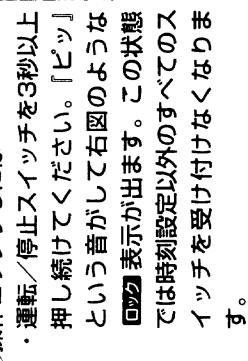 ・運転/停止スイッチを3秒以上
押し続けてください。『ピッ』
という音がして右図のような
ロック表示が出ます。この状態
では時刻設定以外のすべてのス
イッチを受け付けなくなりま
す。